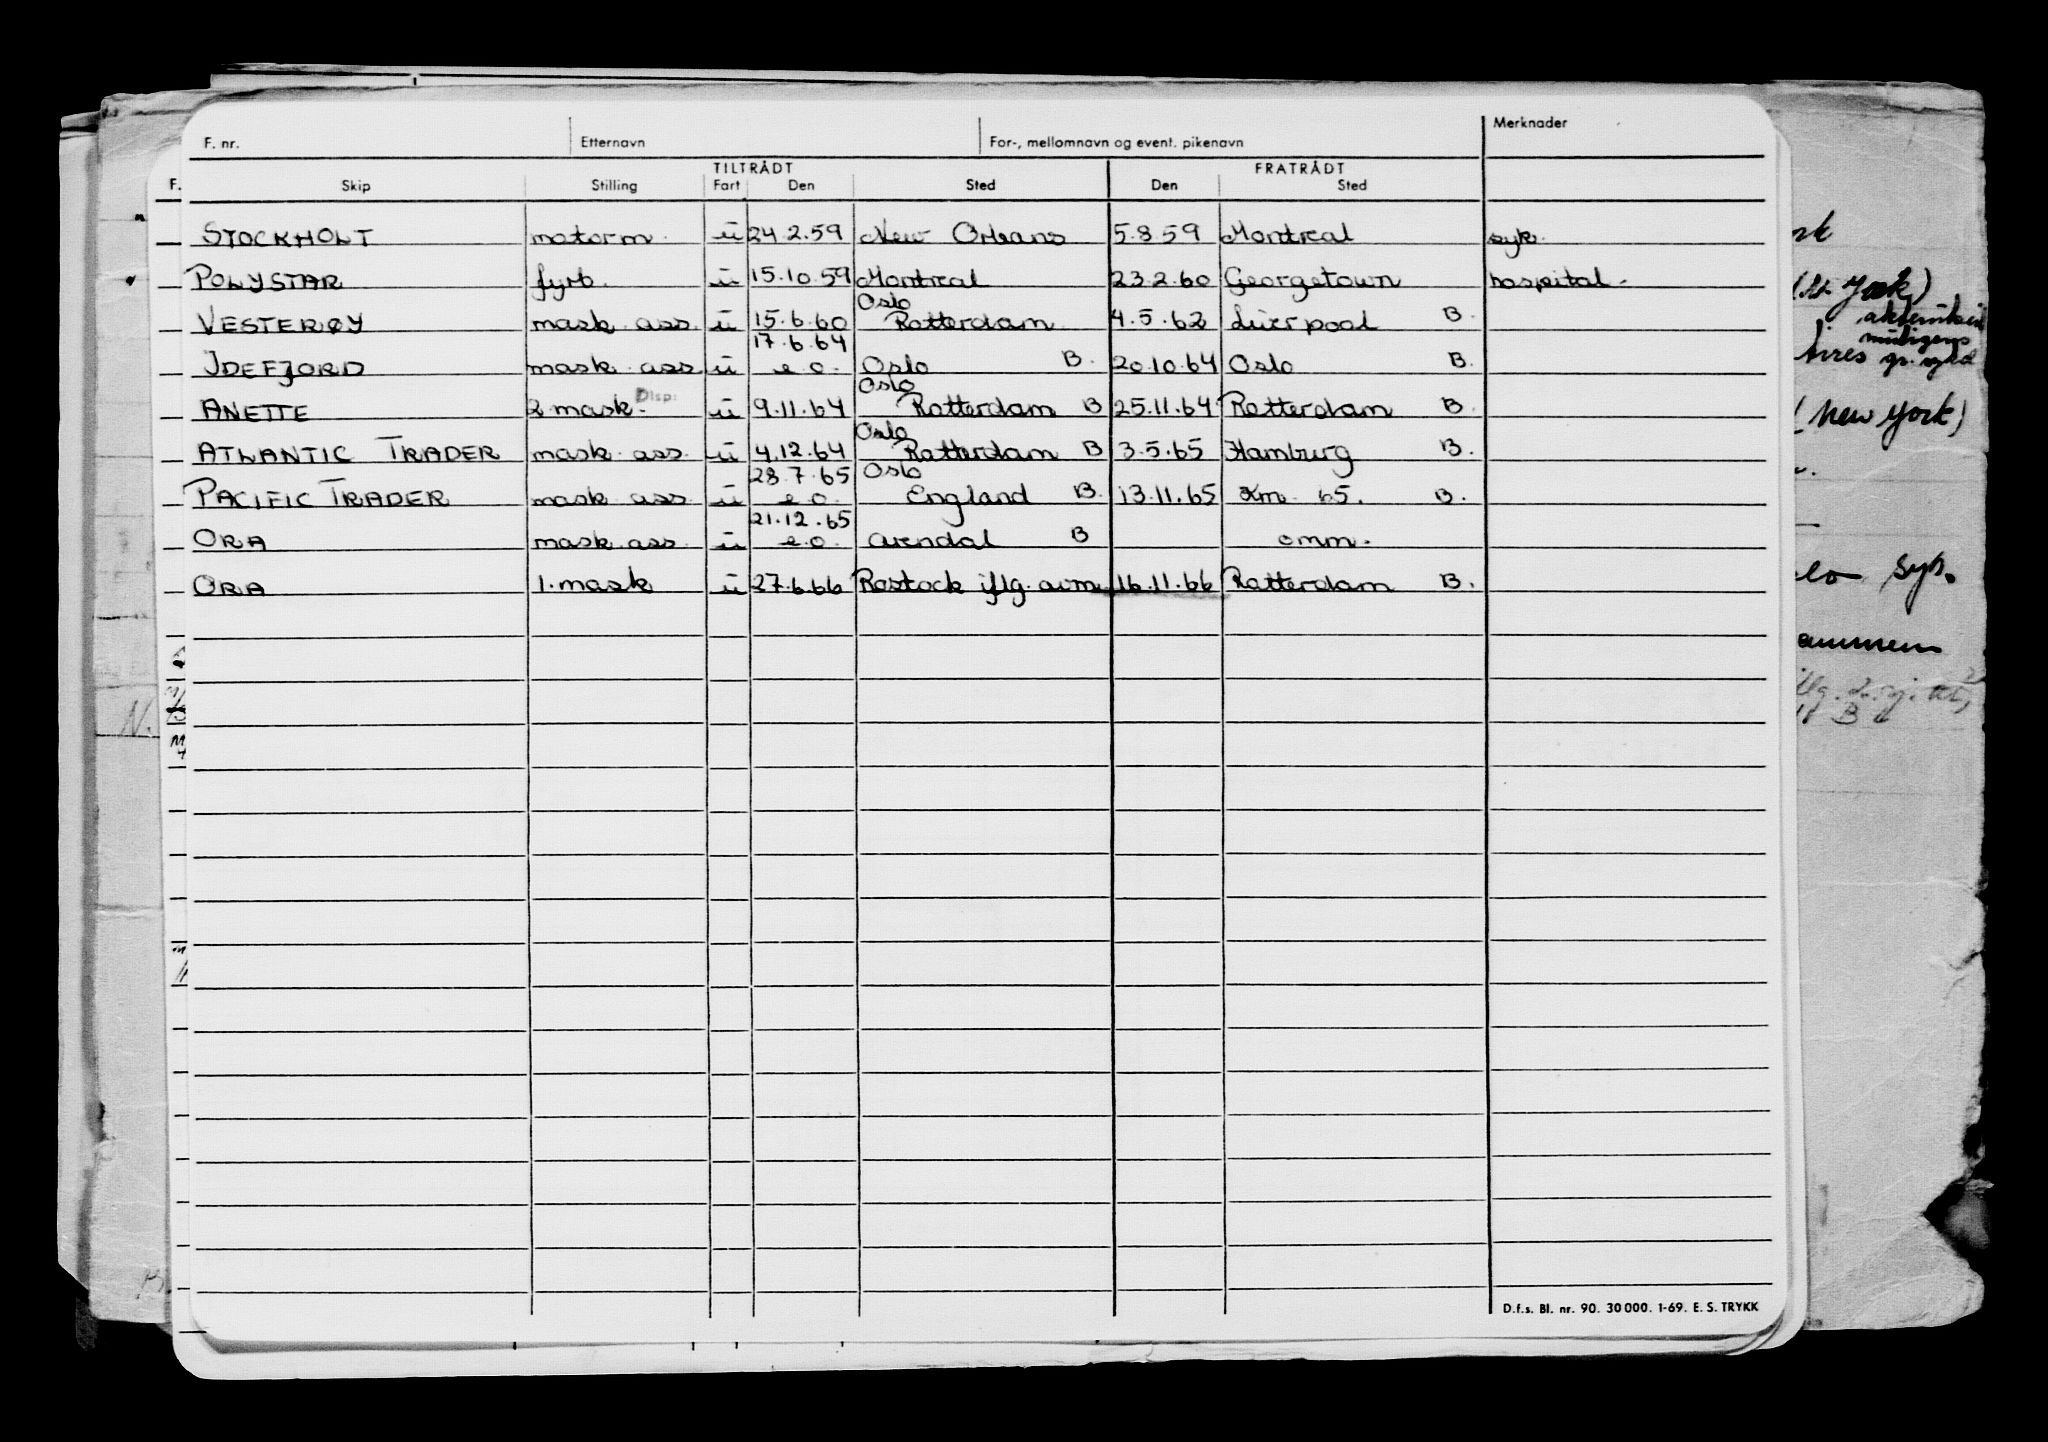 F. nr. Etternavn For-, mellomnavn og event. pikenavn Merknader
TILTRÅDT FRATRÅDT
F. Skip Stilling Fart Den Sted Den Sted
STOCKHOLT motorm. ü 24.2.59 New Orleans 5.8.59 Montreal syk.
POLYSTAR fyrb. ü 15.10.59 Montreal 23.2.60 Georgetown hospital.
Oslo
VESTERØY mask. ass. ü 15.6.60 Rotterdam 4.5.62 Liverpool B.
17.6.64
IDEFJORD mask. ass. ü e.o. Oslo B. 20.10.64 Oslo B.
Oslo
ANETTE 2. mask. Disp: ü 9.11.64 Rotterdam B 25.11.64 Rotterdam B.
Oslo
ATLANTIC TRADER mask. ass. ü 4.12.64 Rotterdam B 3.5.65 Hamburg B.
28.7.65 Oslo
PACIFIC TRADER mask. ass. ü e.o. England B. 13.11.65 Km. 65. B.
21.12.65
ORA mask. ass. ü e.o. Arendal B omm.
ORA 1. mask ü 27.6.66 Rostock iflg. avm. 16.11.66 Rotterdam B.
(New York)
syk.
N.
D.f.s. Bl. nr. 90. 30 000. 1-69. E. S. TRYKK